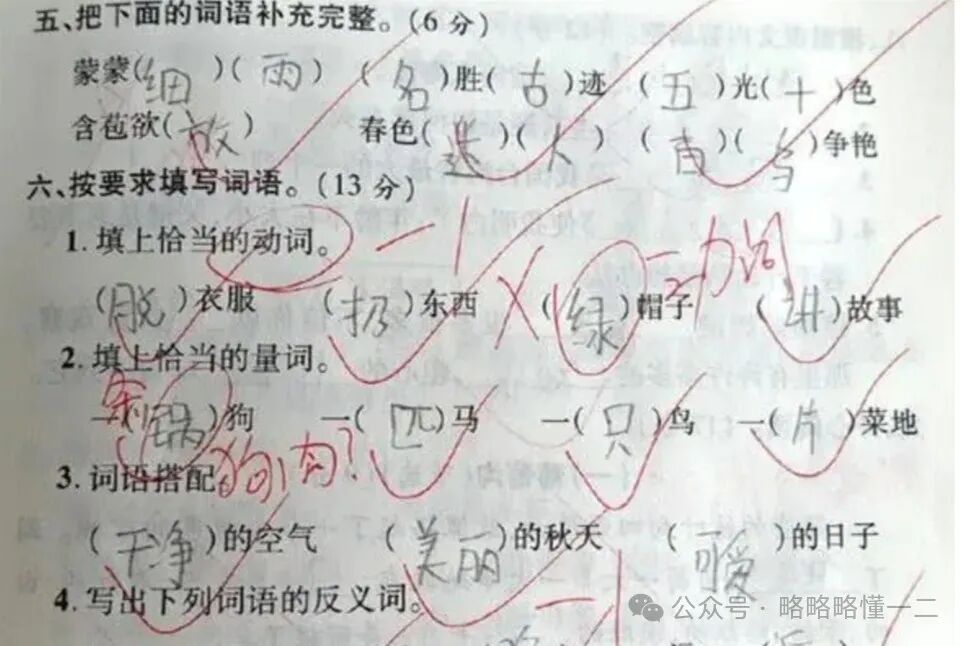 五、把下面的词语补充完整。(6分)
蒙蒙(细)(雨) (名)胜(古)迹 (五)光(十)色
含苞欲(放) 春色(迷)(人) (百)(鸟)争艳
六、按要求填写词语。(13分)
1. 填上恰当的动词。 -1
(脱)衣服 (扔)东西 (绿)帽子 (讲)故事
动词
2. 填上恰当的量词。
条
一(锅)狗 一(匹)马 一(只)鸟 一(片)菜地
狗肉?
3. 词语搭配。
(干净)的空气 (美丽)的秋天 (可爱)的日子
4. 写出下列词语的反义词。 -1
公众号·略略略懂一二